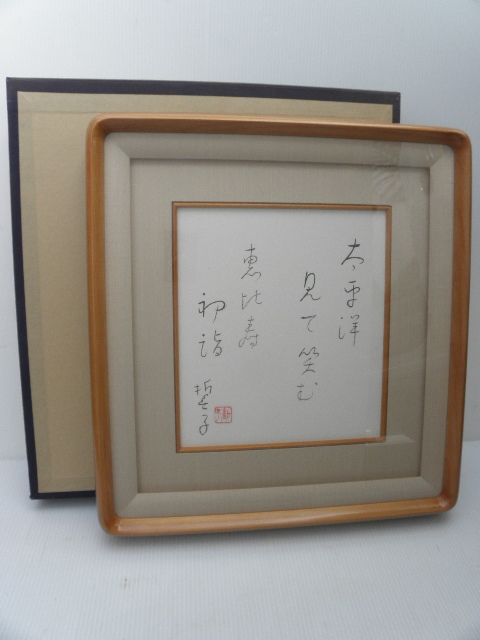 太平洋
見て笑む
恵比寿
初詣
哲子